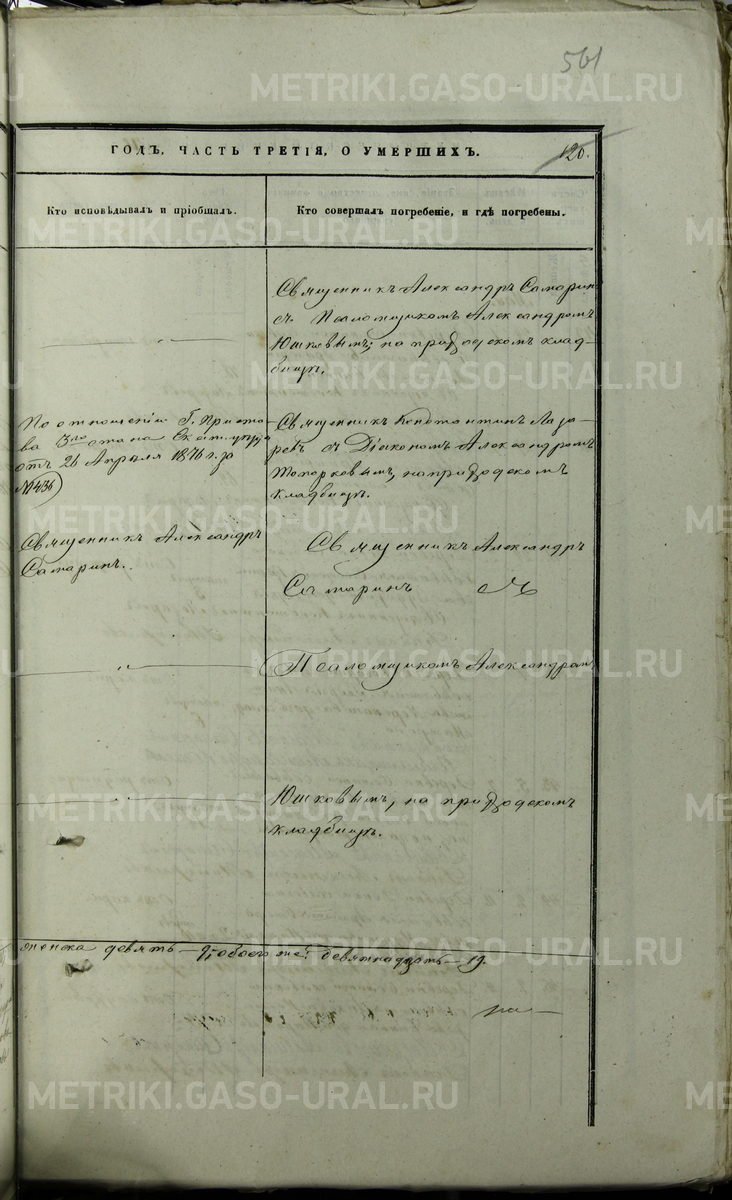 561
ГОДЪ, ЧАСТЬ ТРЕТІЯ, О УМЕРШИХЪ.
120.
Кто исповѣдывалъ и пріобщалъ.
Кто совершалъ погребеніе, и гдѣ погребены.
Священникъ Александръ Самаринъ
съ Псаломщикомъ Александромъ
Юшковымъ, на приходскомъ клад-
бищѣ.
По отношенію Г. Приста-
ва 3го стана Екат. уѣзда
отъ 26 Апрѣля 1876 г. за
№436
Священникъ Константинъ Лаза-
ревъ съ Діакономъ Александромъ
Топорковымъ, на приходскомъ
кладбищѣ.
Священникъ Александръ
Самаринъ.
Священникъ Александръ
Самаринъ съ
Псаломщикомъ Александромъ
Юшковымъ, на приходскомъ
кладбищѣ.
женска девять — 9, обоего же: девятнадцать — 19.
METRIKI.GASO-URAL.RU